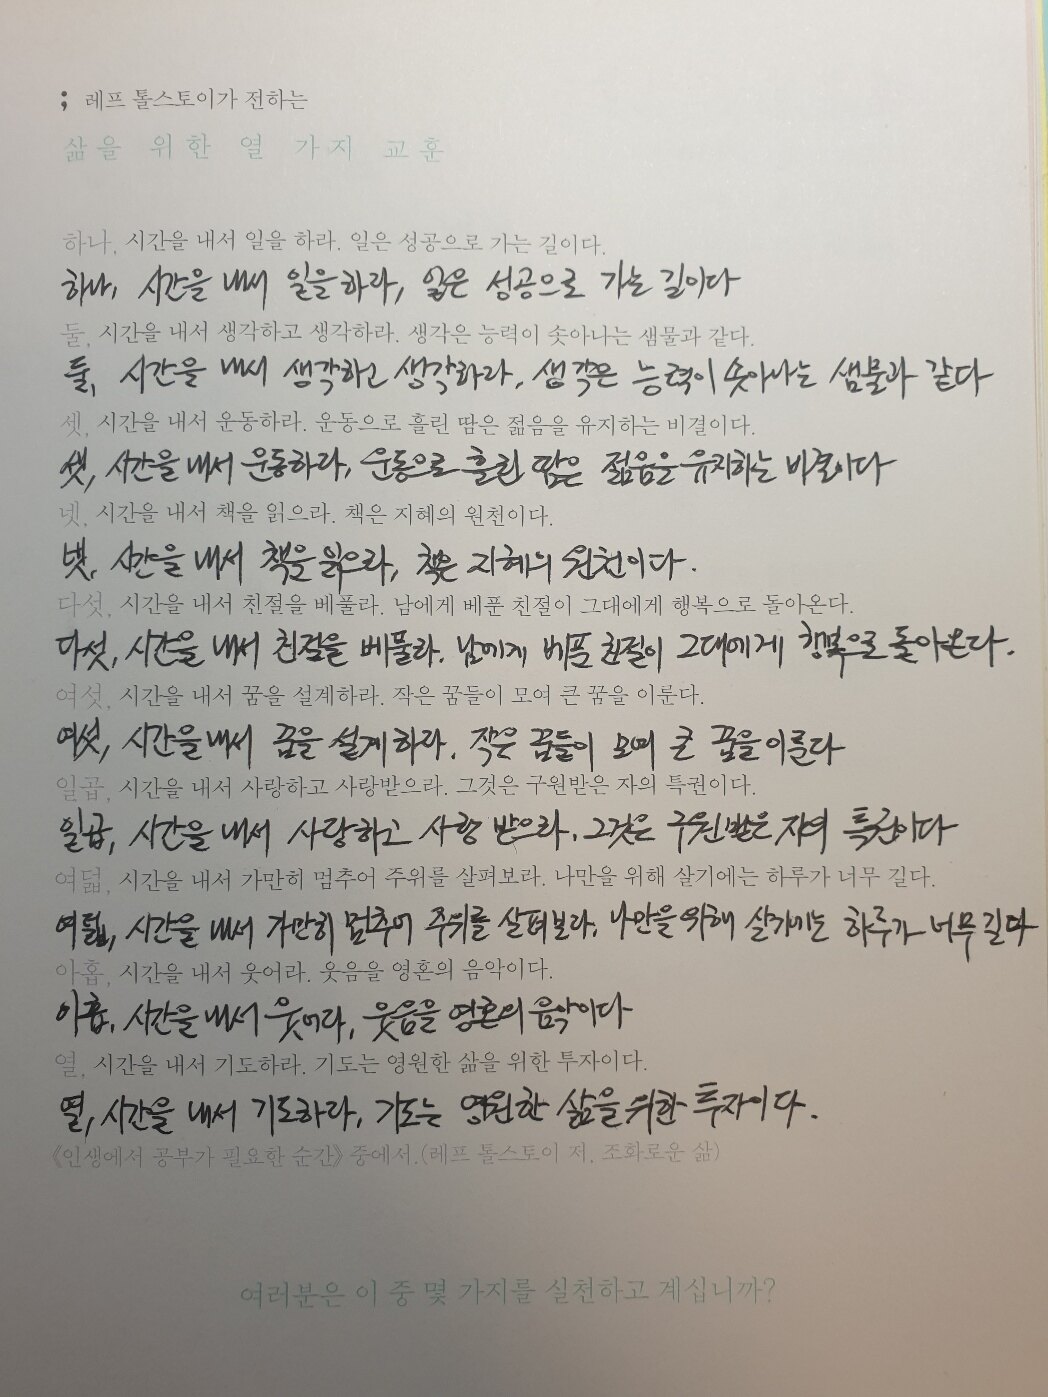 ; 레프 톨스토이가 전하는
삶을 위한 열 가지 교훈
하나, 시간을 내서 일을 하라. 일은 성공으로 가는 길이다.
하나, 시간을 내서 일을 하라, 일은 성공으로 가는 길이다
둘, 시간을 내서 생각하고 생각하라. 생각은 능력이 솟아나는 샘물과 같다.
둘, 시간을 내서 생각하고 생각하라. 생각은 능력이 솟아나는 샘물과 같다
셋, 시간을 내서 운동하라. 운동으로 흘린 땀은 젊음을 유지하는 비결이다.
셋, 시간을 내서 운동하라, 운동으로 흘린 땀은 젊음을 유지하는 비결이다
넷, 시간을 내서 책을 읽으라. 책은 지혜의 원천이다.
넷, 시간을 내서 책을 읽으라, 책은 지혜의 원천이다.
다섯, 시간을 내서 친절을 베풀라. 남에게 베푼 친절이 그대에게 행복으로 돌아온다.
다섯, 시간을 내서 친절을 베풀라. 남에게 베푼 친절이 그대에게 행복으로 돌아온다.
여섯, 시간을 내서 꿈을 설계하라. 작은 꿈들이 모여 큰 꿈을 이룬다.
여섯, 시간을 내서 꿈을 설계하라. 작은 꿈들이 모여 큰 꿈을 이룬다
일곱, 시간을 내서 사랑하고 사랑받으라. 그것은 구원받은 자의 특권이다.
일곱, 시간을 내서 사랑하고 사랑 받으라. 그것은 구원받은 자의 특권이다
여덟, 시간을 내서 가만히 멈추어 주위를 살펴보라. 나만을 위해 살기에는 하루가 너무 길다.
여덟, 시간을 내서 가만히 멈추어 주위를 살펴보라. 나만을 위해 살기에는 하루가 너무 길다
아홉, 시간을 내서 웃어라. 웃음을 영혼의 음악이다.
아홉, 시간을 내서 웃어라, 웃음을 영혼의 음악이다
열, 시간을 내서 기도하라. 기도는 영원한 삶을 위한 투자이다.
열, 시간을 내서 기도하라, 기도는 영원한 삶을 위한 투자이다.
《인생에서 공부가 필요한 순간》 중에서.(레프 톨스토이 저. 조화로운 삶)
여러분은 이 중 몇 가지를 실천하고 계십니까?